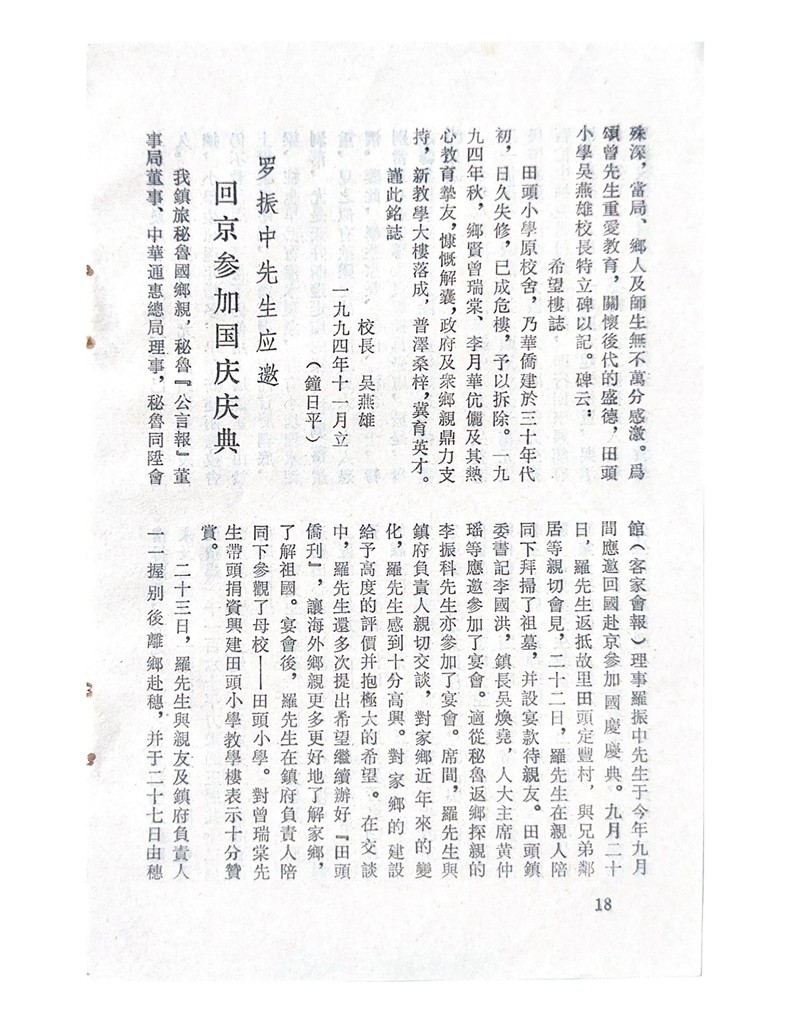 殊深，當局、鄉人及師生無不萬分感激。爲
頌曾先生重愛教育，關懷後代的盛德，田頭
小學吳燕雄校長特立碑以記。碑云：
希望樓誌
田頭小學原校舍，乃華僑建於三十年代
初，日久失修，已成危樓，予以拆除。一九
九四年秋，鄉賢曾瑞棠、李月華伉儷及其熱
心教育摯友，慷慨解囊，政府及衆鄉親鼎力支
持，新教學大樓落成，普澤桑梓，冀育英才。
謹此銘誌
校長 吳燕雄
一九九四年十一月立
（鐘日平）
罗振中先生应邀
回京参加国庆庆典
我鎮旅秘魯國鄉親，秘魯『公言報』董
事局董事、中華通惠總局理事，秘魯同陞會
館（客家會報）理事羅振中先生于今年九月
間應邀回國赴京參加國慶慶典。九月二十
日，羅先生返抵故里田頭定豐村，與兄弟鄰
居等親切會見，二十二日，羅先生在親人陪
同下拜掃了祖墓，并設宴款待親友。田頭鎮
委書記李國洪，鎮長吳煥堯，人大主席黄仲
瑶等應邀參加了宴會。適從秘魯返鄉探親的
李振科先生亦參加了宴會。席間，羅先生與
鎮府負責人親切交談，對家鄉近年來的變
化，羅先生感到十分高興。對家鄉的建設
給予高度的評價并抱極大的希望。在交談
中，羅先生還多次提出希望繼續辦好『田頭
僑刋』，讓海外鄉親更多更好地了解家鄉，
了解祖國。宴會後，羅先生在鎮府負責人陪
同下參觀了母校——田頭小學。對曾瑞棠先
生帶頭捐資興建田頭小學教學樓表示十分贊
賞。
二十三日，羅先生與親友及鎮府負責人
一一握别後離鄉赴穗，并于二十七日由穗
18